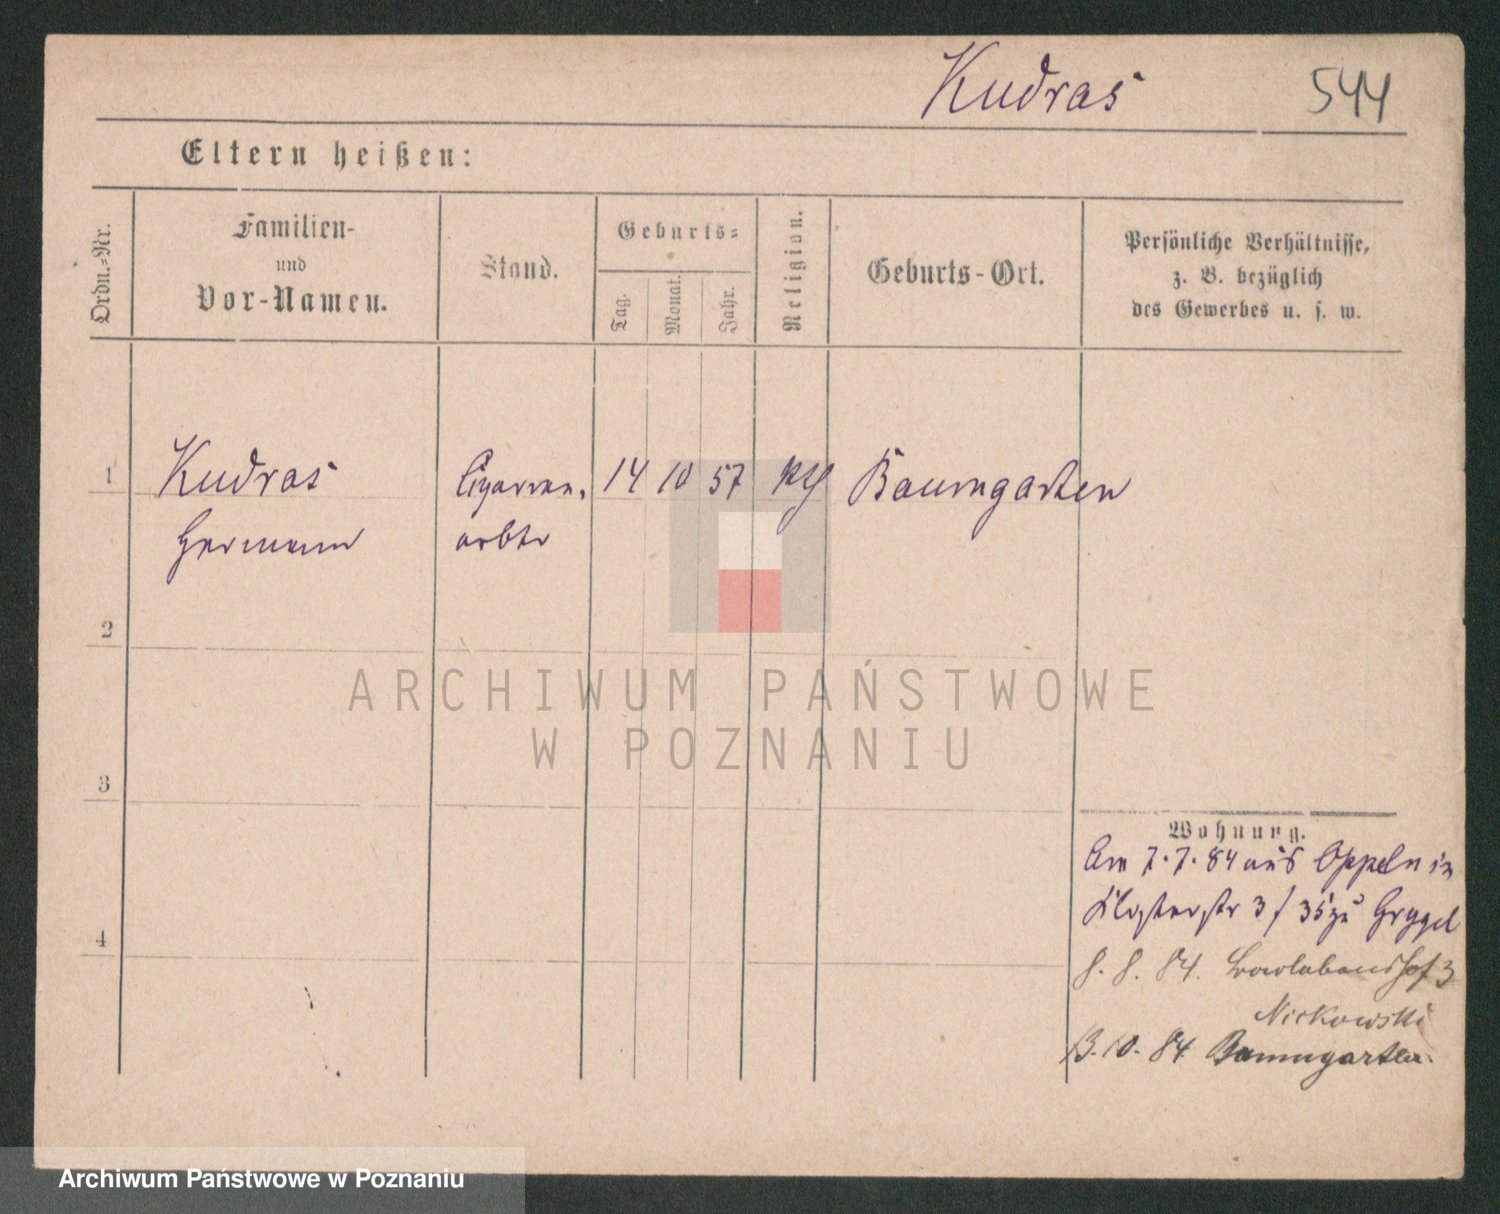 Kudras 544
Eltern heißen:
Ordn.-Nr.
Familien-
und
Vor-Namen.
Stand.
Geburts-
Tag.
Monat.
Jahr.
Religion.
Geburts-Ort.
Persönliche Verhältnisse,
z. B. bezüglich
des Gewerbes u. s. w.
1 Kudras Cigarren- 14 10 57 kth Baumgarten
Hermann arbtr
2
ARCHIWUM PAŃSTWOWE
W POZNANIU
3
Wohnung.
Am 7.7.84 aus Oppeln in
Klosterstr 3 / 35 zu
4
8. 8. 84.
13.10.84 Baumgarten.
Archiwum Państwowe w Poznaniu